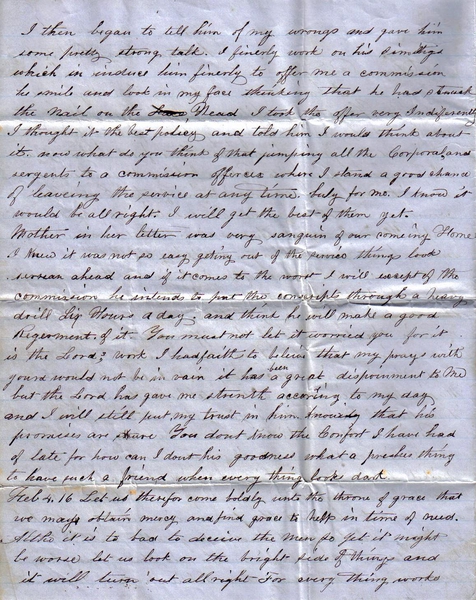 I then began to tell him of my wrongs and gave him
some pretty strong talk. I finerly work on his
which in induce him finerly to offer me a commission
he smile and look in my face thinking that he had struck
the Nail on the Head I took the offer very Indiferently
I thought it the best policy and told him I would think about
it. now what do you think of that jumping all the Corporal and
sergents to a commission officer where I stand a good chance
of leaveing the service at any time. buly for me. I know it
would be all right. I will get the best of them yet.
Mother in her letter was very sanguin of our comeing Home
I knew it was not so easy geting out of the service things look
ahead and if it comes to the worst I will except of the
commission he intends to put the conscripts through a heavy
drill Six Hours a day and think he will make a good
Regerment of it. You must not let it worried you for it
is the Lord's work I had faith to believe that my prays with
yours would not be in vain it has been a great dispoinment to Me
but the Lord has gave me strenth accoring to my day
and I will still put my trust in him knowing that his
promises are You dont know the Confort I have had
of late for how can I dout his goodness what a preshus thing
to have such a friend when every thing looks dark
Heb 4.16 Let us therefor come boldly unto the throne of grace that
we may obtain mercy and find grace to help in time of need.
Altho it is to bad to deceive the Men so yet it might
be worse let us look on the bright side of things and
it will turn out all right For every thing works